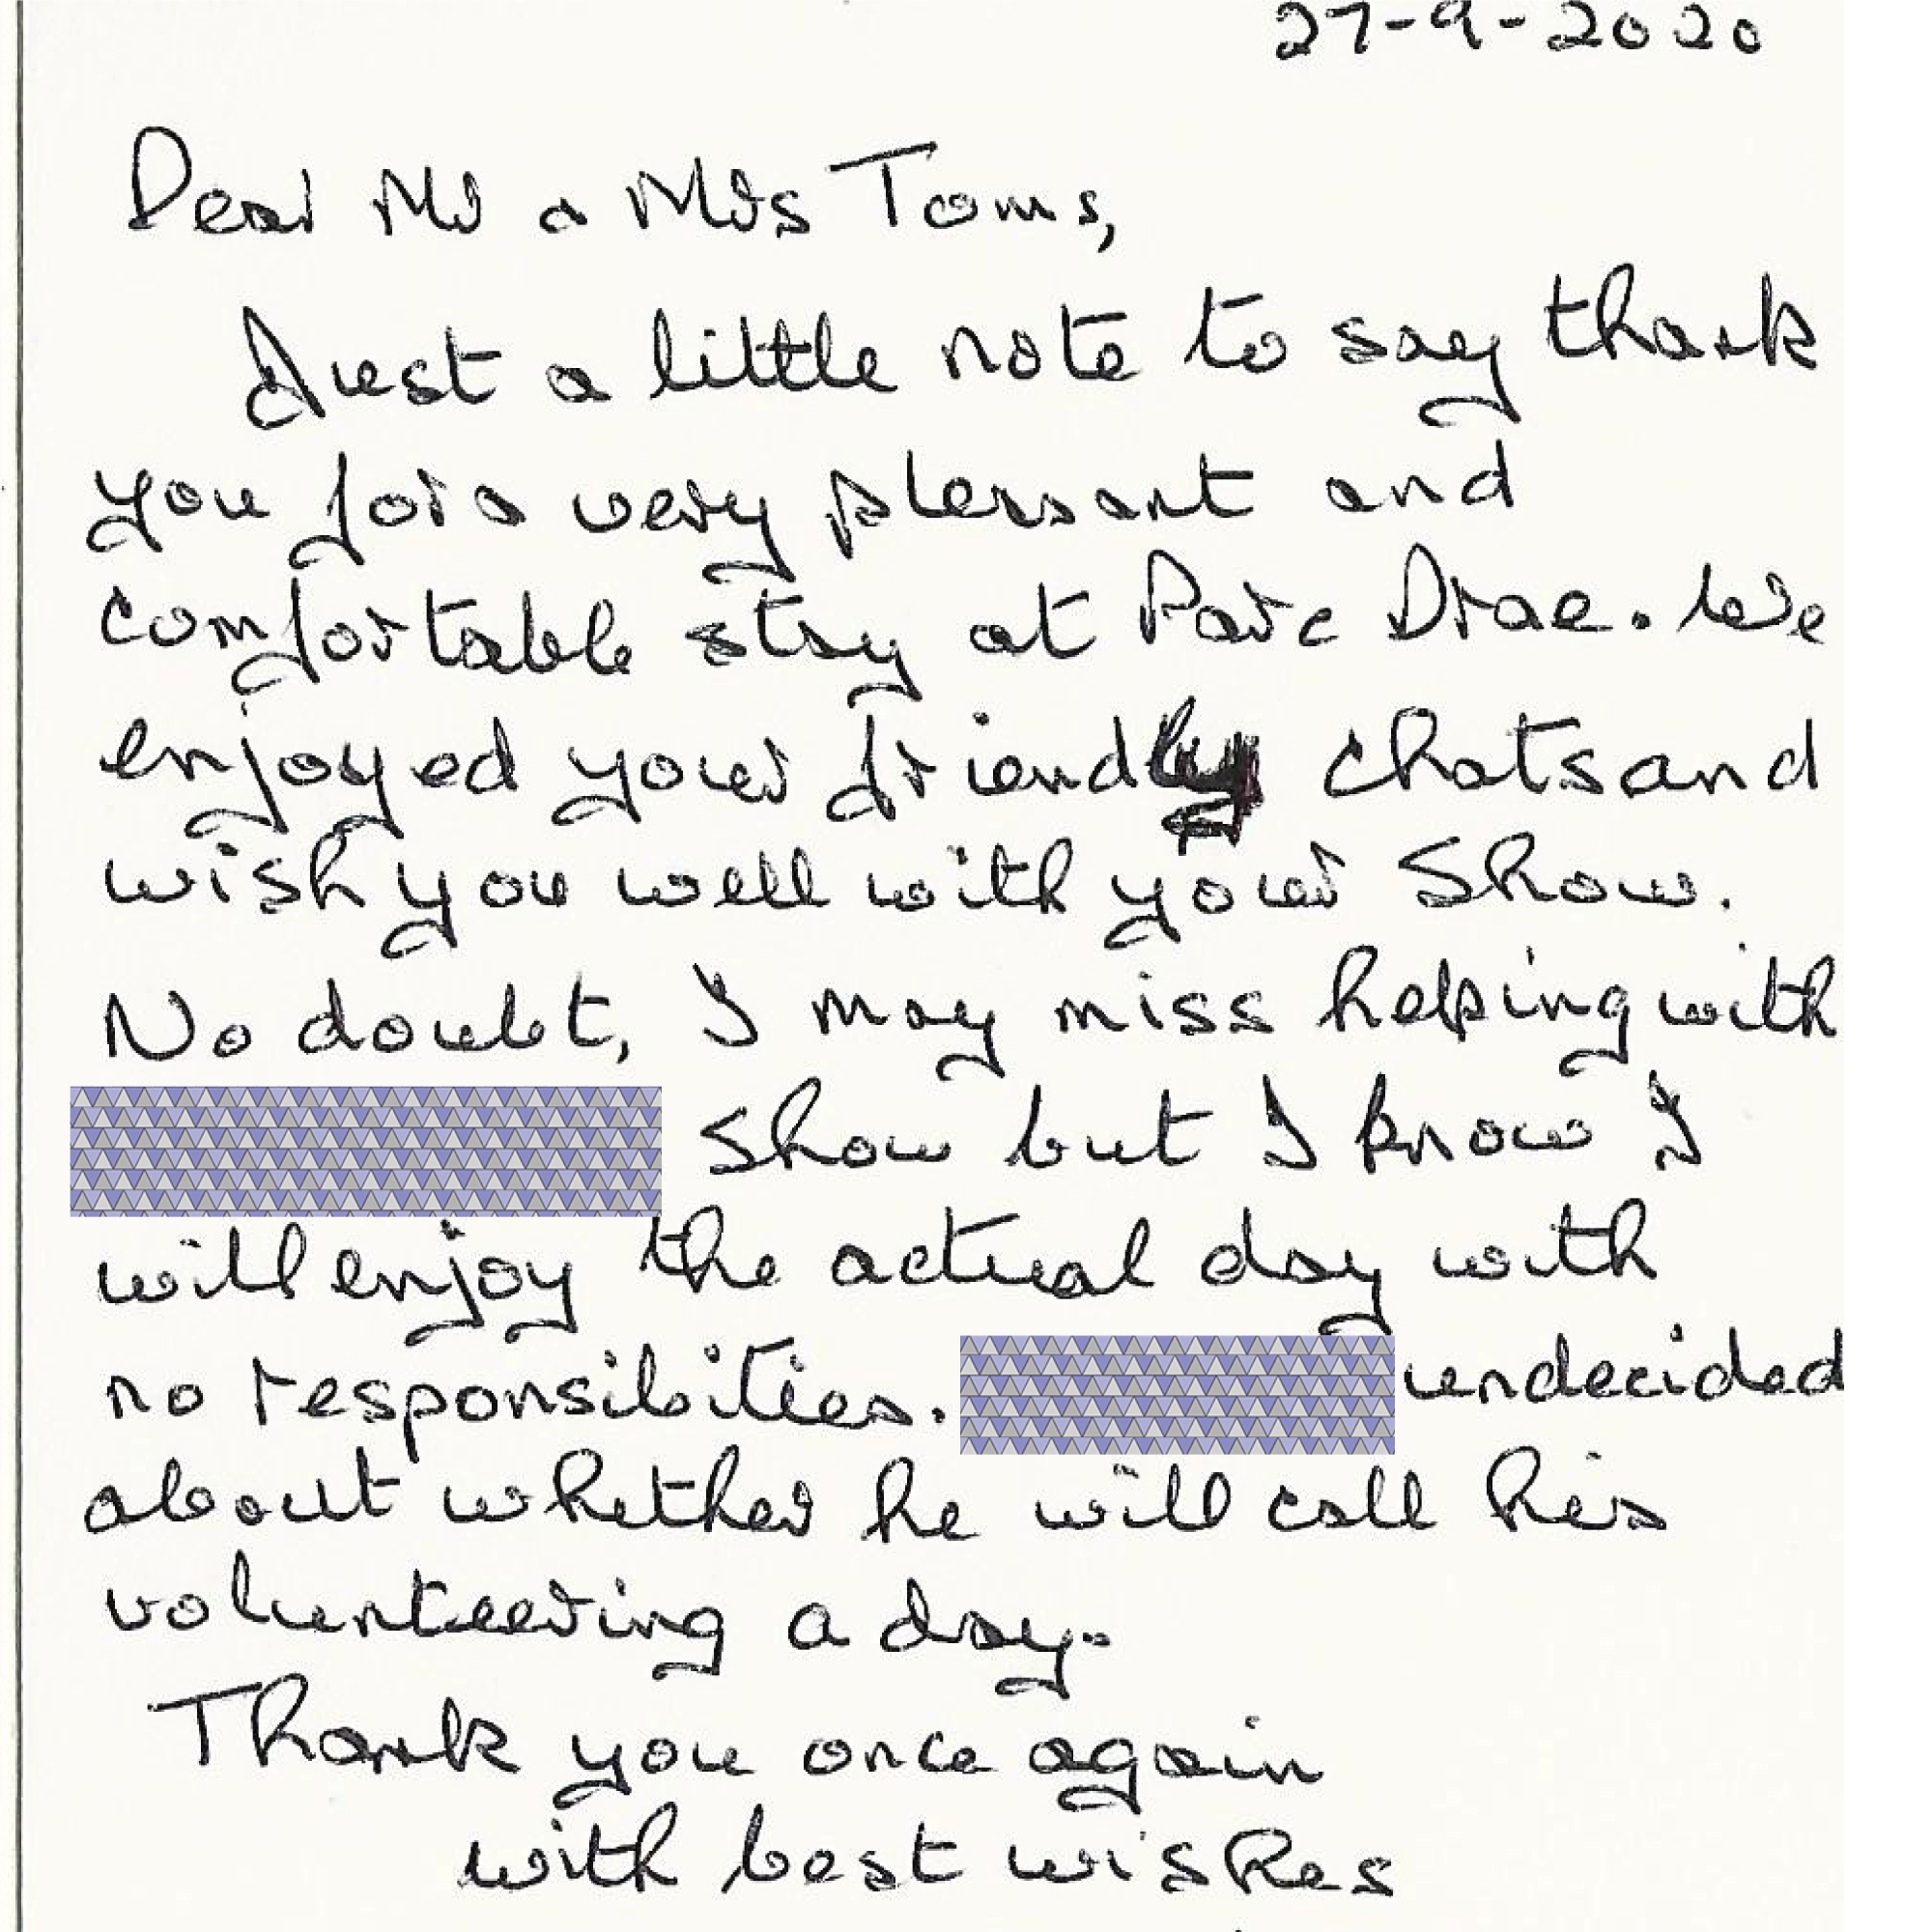 27-9-2020
Dear Mr & Mrs Toms,
Just a little note to say thank
you for a very pleasant and
comfortable stay at Parc Drae. We
enjoyed your friendly chats and
wish you well with your Show.
No doubt, I may miss helping with
Show but I know I
will enjoy the actual day with
no responsibities.
undecided
about whether he will call his
volunteering a day.
Thank you once again
with best wishes